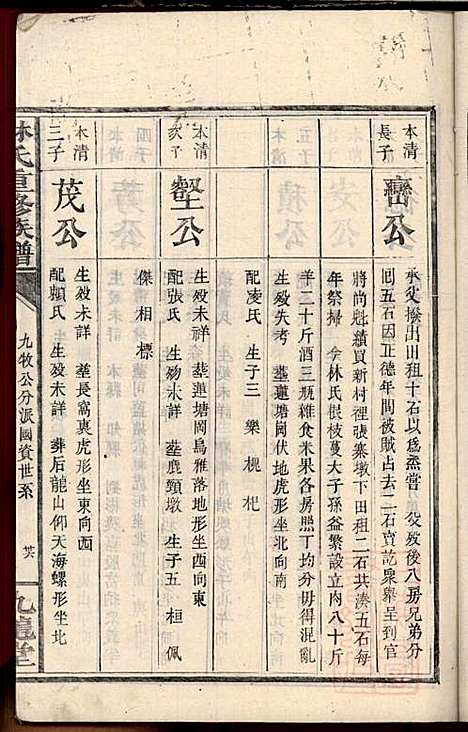 本清
長子
巒公
承父撥出田租十石以爲烝嘗 公歿後八房兄弟分
囘五石因正德年間被賊占去二石賣訖衆舉呈到官
將尚魁續買新村裡張寨墩下田租二石共湊五石每
年祭掃 公林氏俍枝蔓大子孫益繁設立肉八十斤
羊二十斤酒三瓶雜食米果各房照丁均分毋得混亂
生歿失考 塟蓮塘岡伏地虎形坐北向南
配凌氏 生子三 樂 棿 杞
本清
次子
壑公
生歿未詳 塟蓮塘岡烏雅落地形坐西向東
配張氏 生歿未詳 塟鹿頸墩 生子五 桓 佩
傑 相 標
本清
三子
茂公
生歿未詳 塟長窩裏虎形坐東向西
配賴氏 生歿未詳 葬后龍山仰天海螺形坐北
林氏重修族譜
九牧公分派國資世系
九龍堂